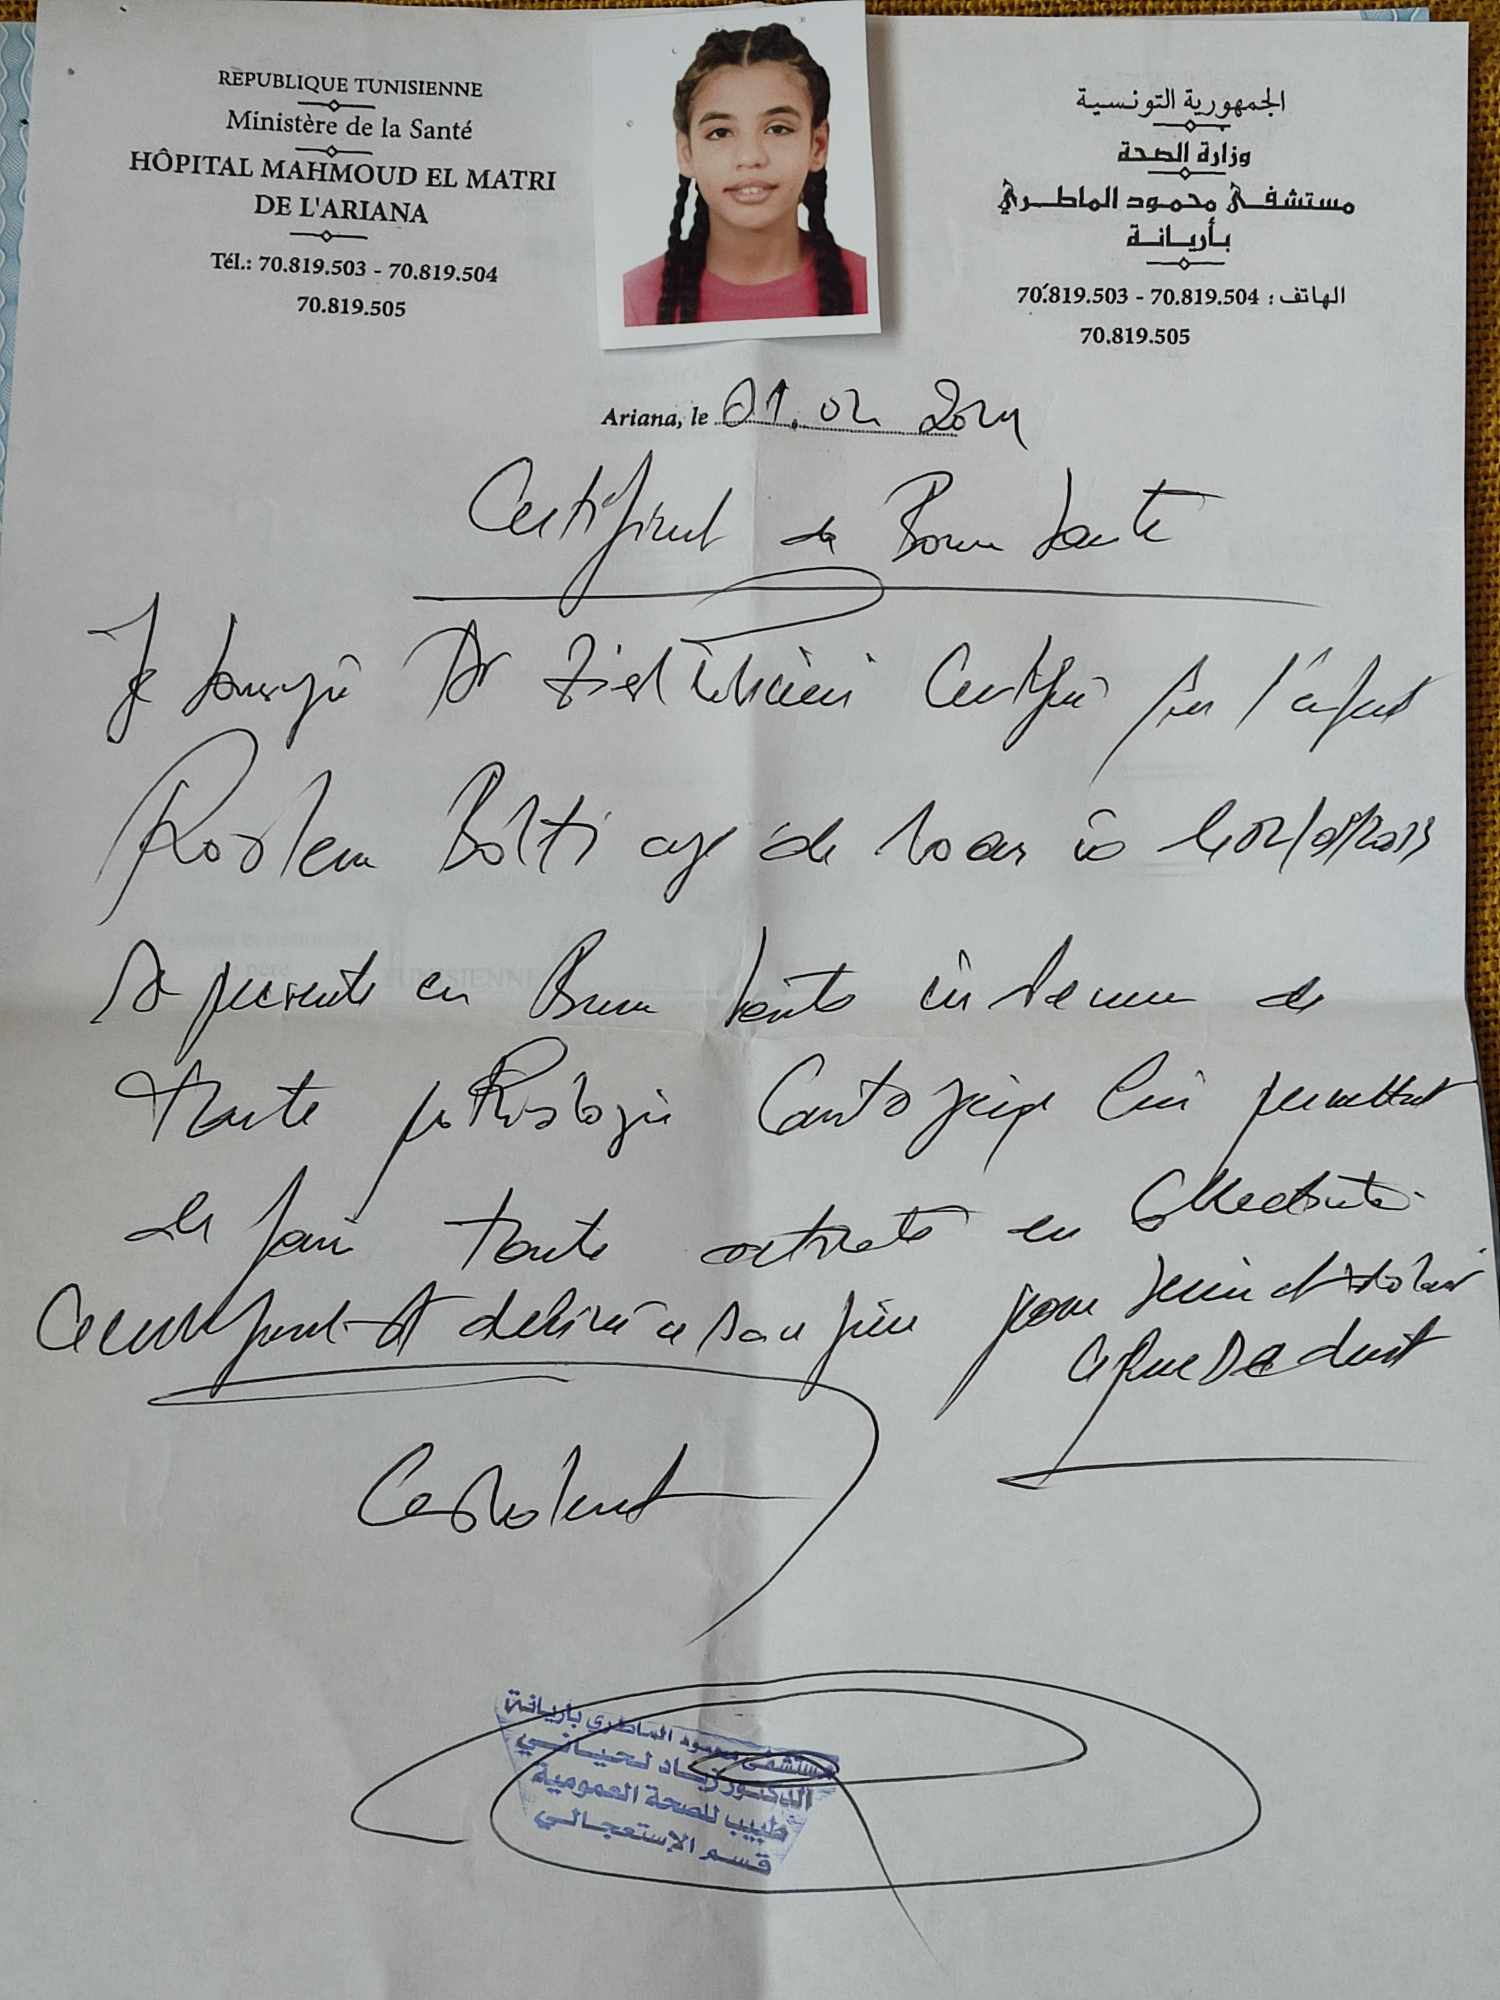 REPUBLIQUE TUNISIENNE
Ministère de la Santé
HÔPITAL MAHMOUD EL MATRI
DE L'ARIANA
Tél.: 70.819.503 - 70.819.504
70.819.505
الجمهورية التونسية
وزارة الصحة
مستشفى محمود الماطري
بأريانة
الهاتف : 70.819.504 - 70.819.503
70.819.505
Ariana, le 01.02 2024
Certificat de Bonne Sante
Je soussigné Dr certifie que l'enfant
age de 10 ans né le 02/
se presente en Bonne Sante indemne de
toute pathologie contagieuse lui permettant
de faire toute activité en collectivité
Ce certificat est délivré à son père pour servir et valoir
ce que de droit
مستشفى محمود الماطري بأريانة
الدكتور زياد لحياني
طبيب للصحة العمومية
قسم الإستعجالي